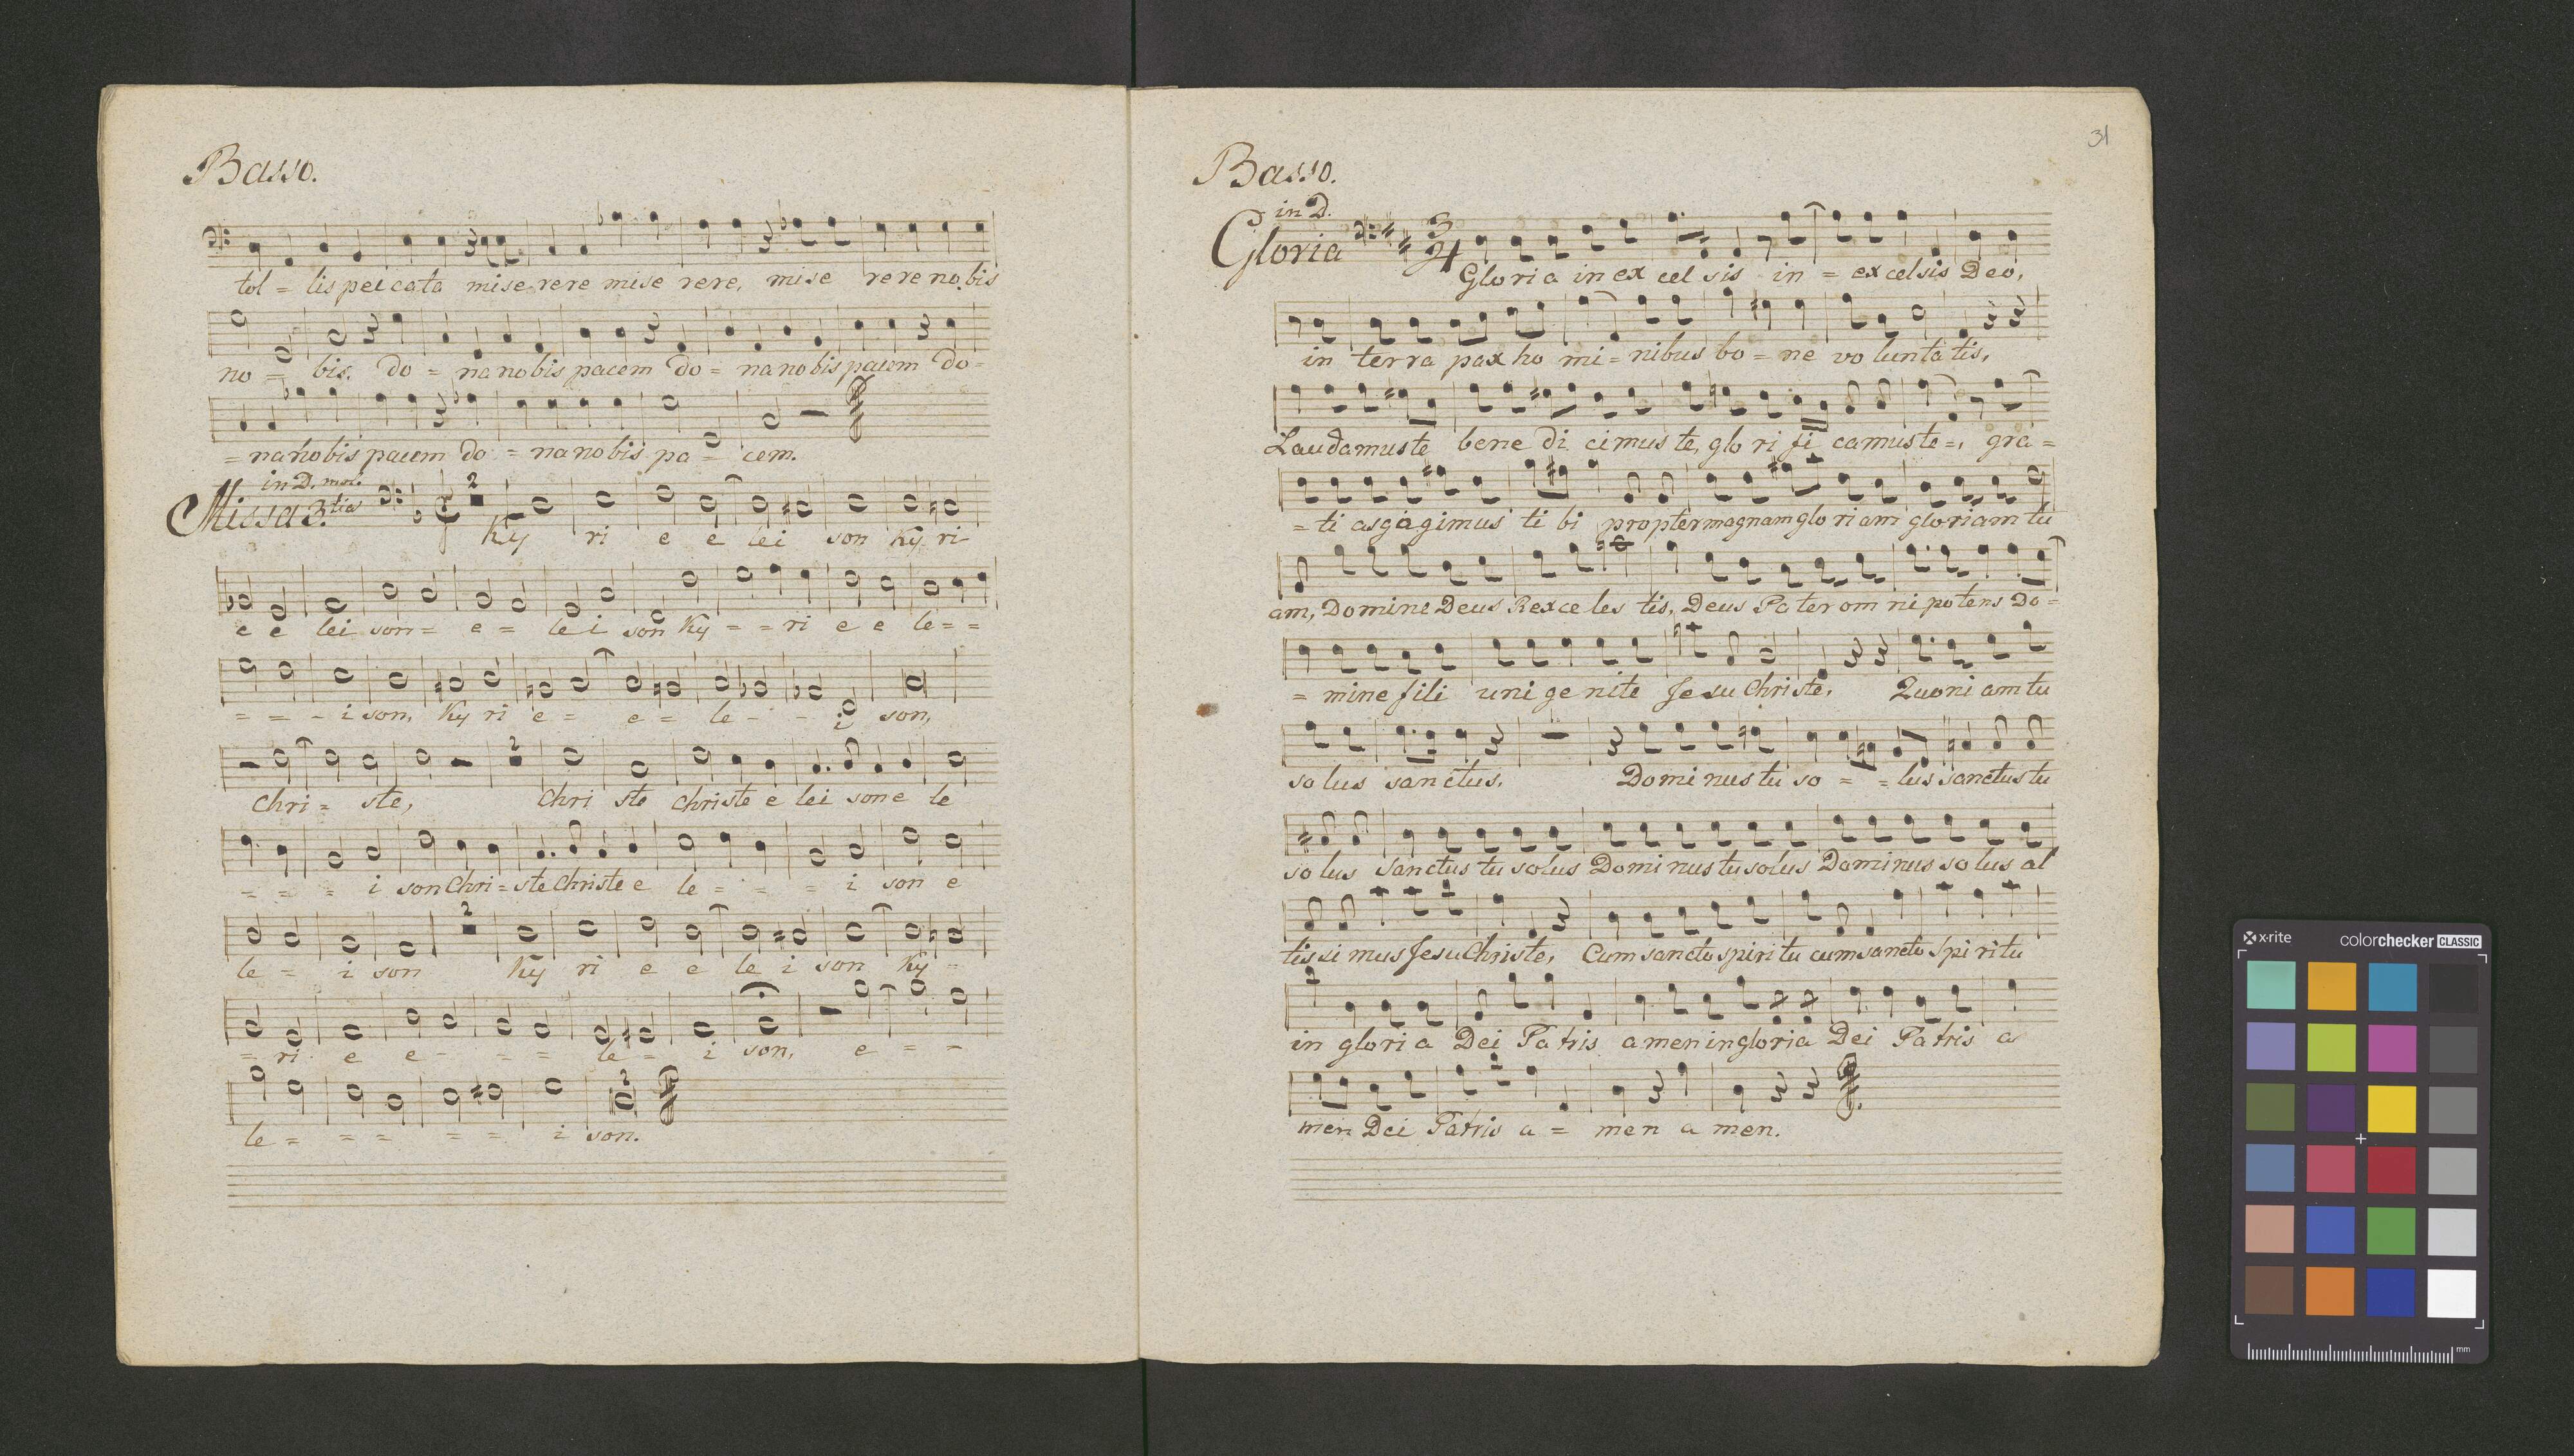 Basso.
tol = lis peccata misererere mise rere, mise rere no.bis
no = bis. do = na nobis pacem do = na nobis pacem do =
= na nobis pacem do = na nobis pa = cem.
in D. mol.
Missa 3.tia
2
Ky ri e e lei son Ky ri
e e lei son = e = lei son Ky = = ri e e le = =
= = - i son, Ky ri e = e = le - - i son,
2
Chri = ste, Chri ste Christe e lei son e le
= = = i son Chri = ste Christe e le = = = i son e
2
le = i son Ky ri e e le i son Ky =
= ri e e - = = le = i son, e = =
2
le = = = = = i son.
31
Basso.
in D.
Gloria 3/4
Gloria in excelsis in = excelsis Deo,
in terra pax homi = nibus bo = ne voluntatis,
Laudamus te bene di cimus te, glorificamus te =, gra =
= ti as gagimus tibi propter magnam gloriam gloriam tu
am, Domine Deus Rex celestis, Deus Pater omnipotens Do =
= mine fili unigenite Jesu Christe, Quoniam tu
solus sanctus. Dominus tu so = = lus sanctus tu
solus sanctus tu solus Dominus tu solus Dominus solus al
tissimus Jesu Christe, Cum sancto spiritu cum sancto Spiritu
in gloria Dei Patris amen in gloria Dei Patris a
men Dei Patris a = men a men.
x·rite colorchecker CLASSIC
mm